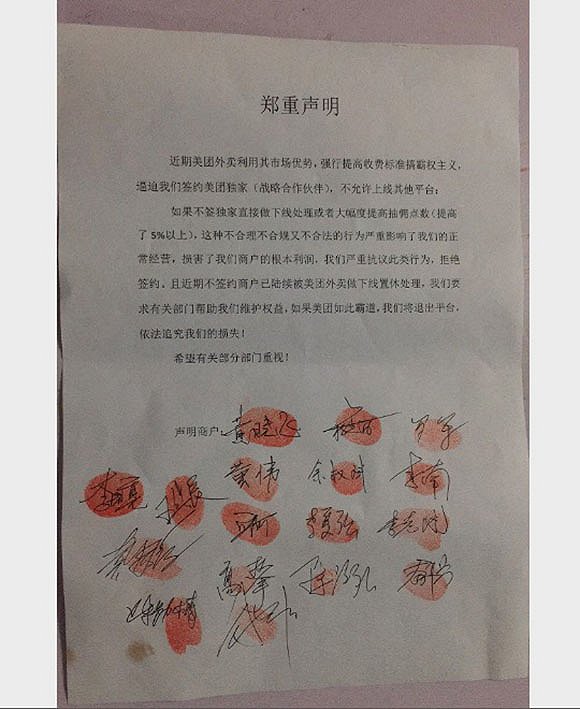 郑重声明
近期美团外卖利用其市场优势，强行提高收费标准搞霸权主义，
逼迫我们签约美团独家（战略合作伙伴），不允许上线其他平台；
如果不签独家直接做下线处理或者大幅度提高抽佣点数（提高
了5%以上），这种不合理不合规又不合法的行为严重影响了我们的正
常经营，损害了我们商户的根本利润，我们严重抗议此类行为，拒绝
签约。且近期不签约商户已陆续被美团外卖做下线置休处理，我们要
求有关部门帮助我们维护权益，如果美团如此霸道，我们将退出平台，
依法追究我们的损失！
希望有关部分部门重视！
声明商户：黄晓飞
黄伟 李南